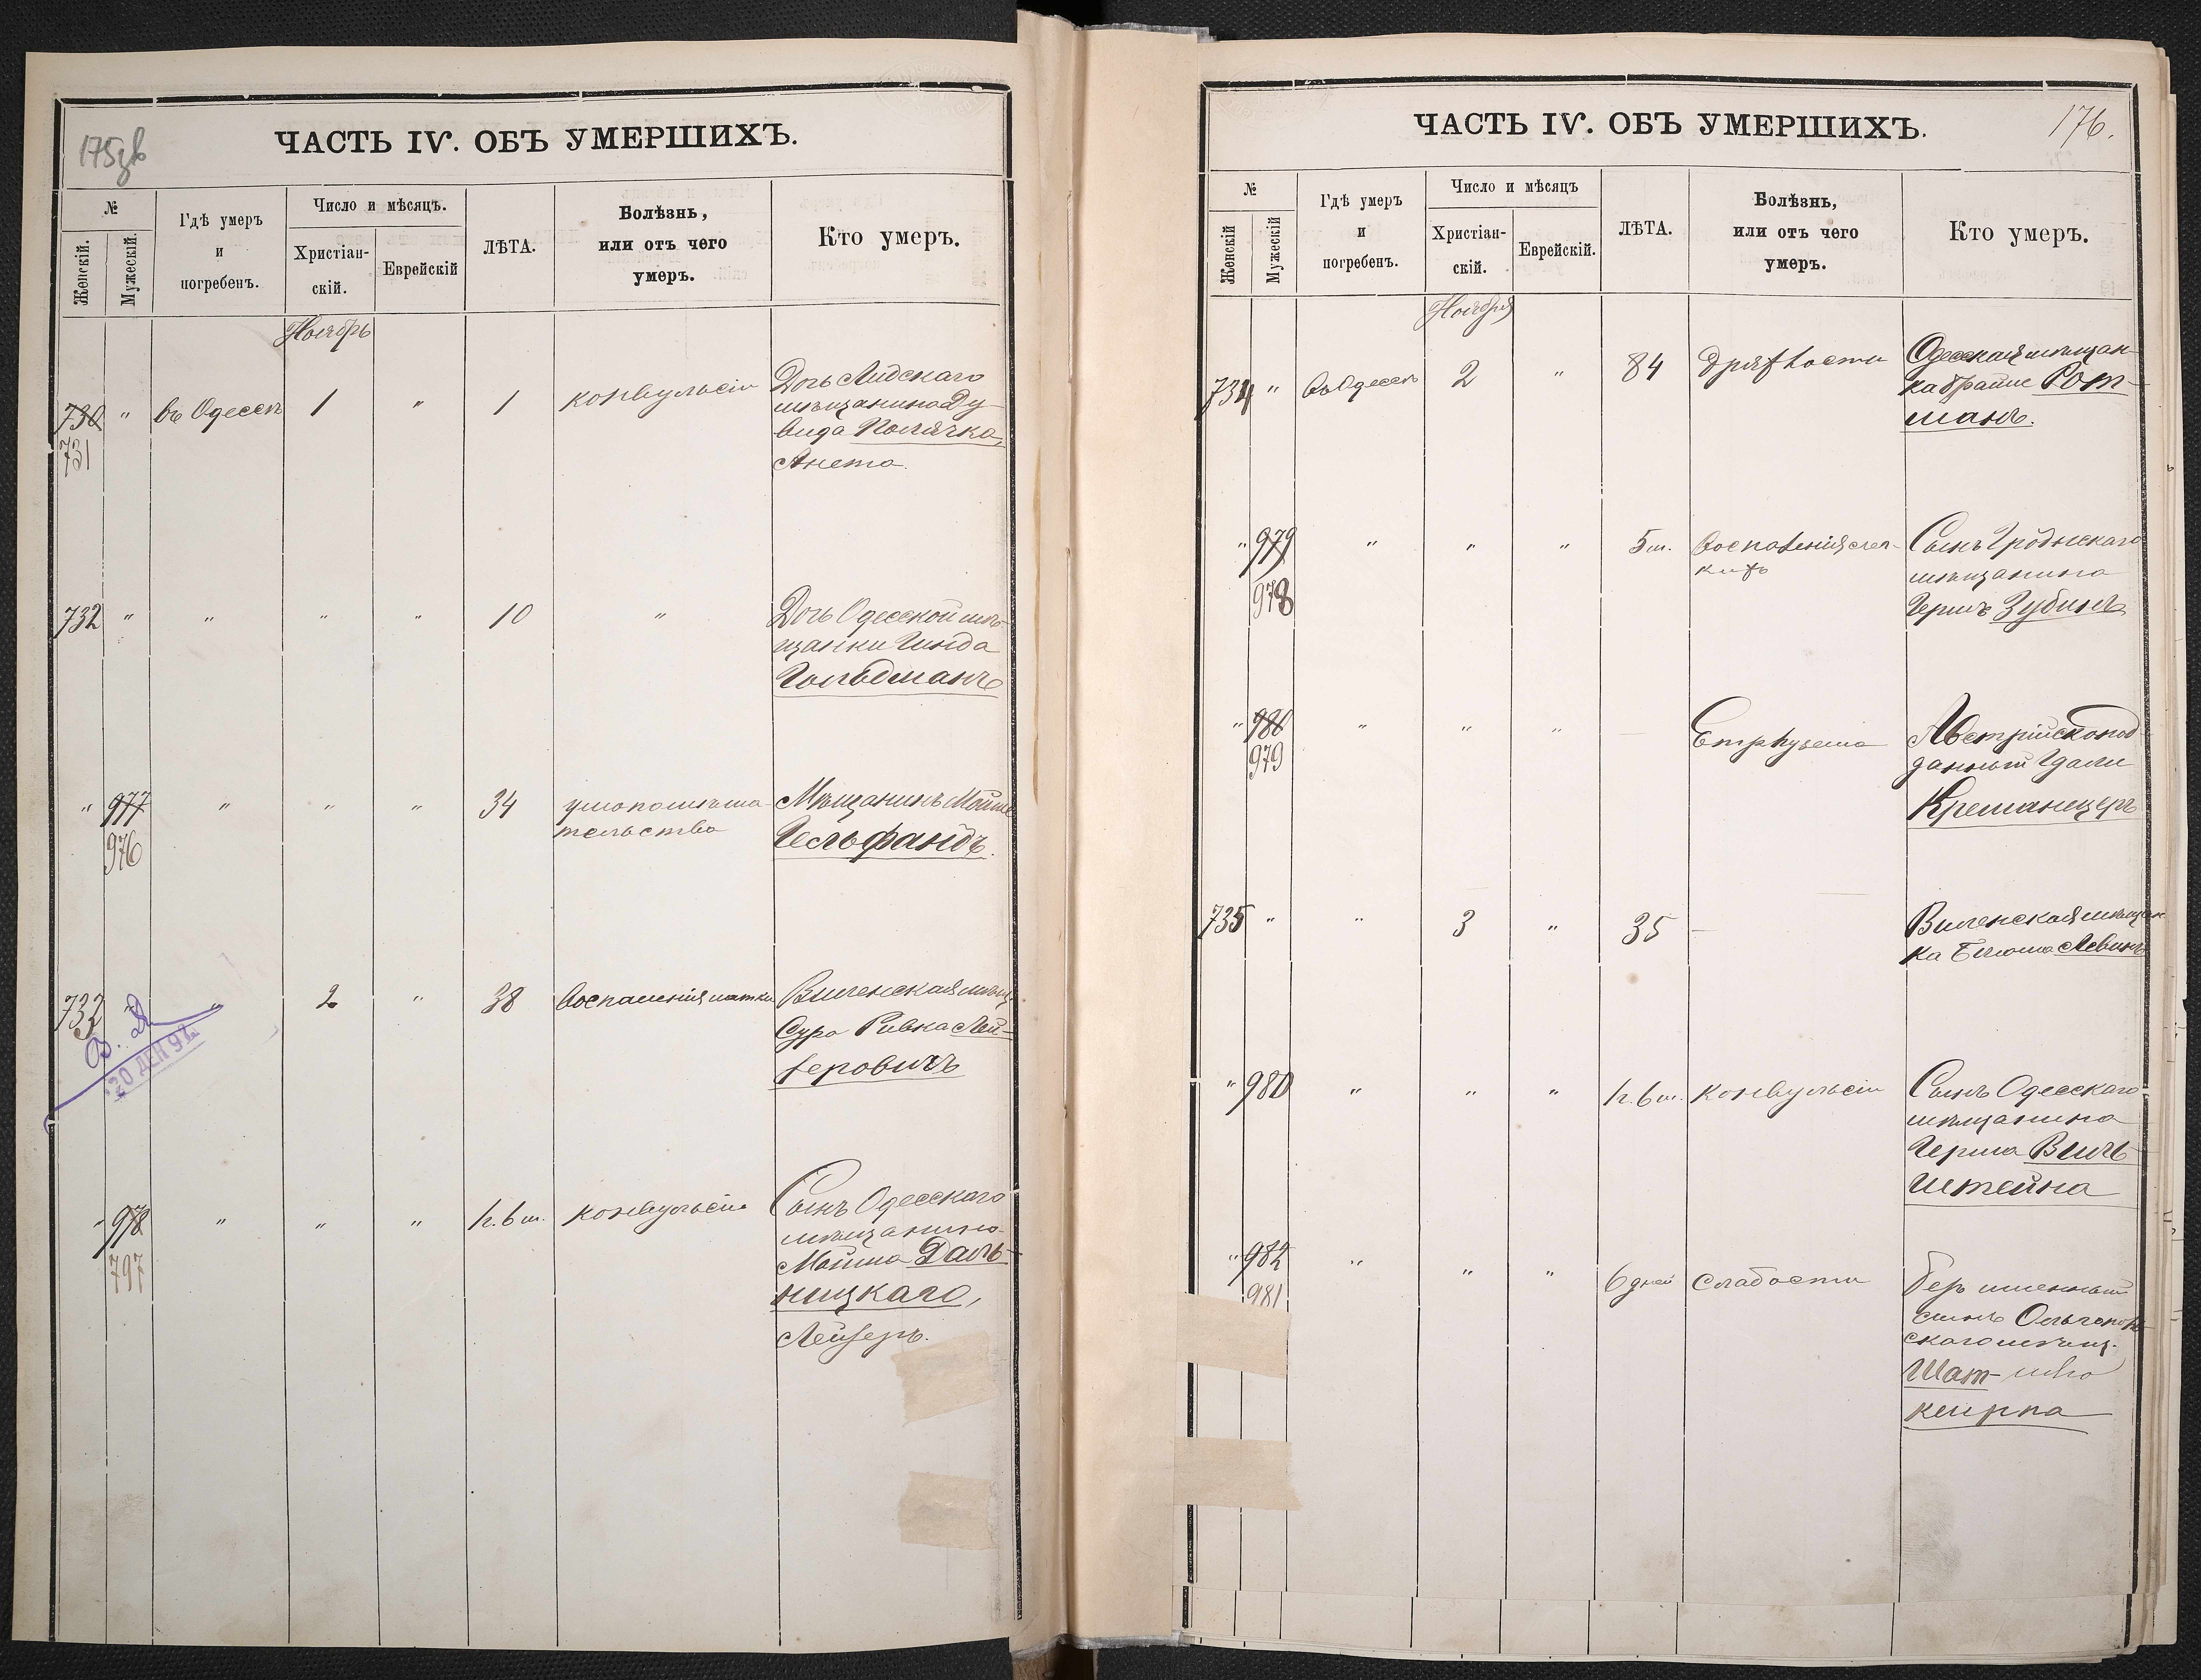 175зв
ЧАСТЬ IV. ОБЪ УМЕРШИХЪ.
№
Женскій.
Мужескій.
Гдѣ умеръ
и
погребенъ.
Число и мѣсяцъ.
Христіан-
скій.
Еврейскій
ЛѢТА.
Болѣзнь,
или отъ чего
умеръ.
Кто умеръ.
Ноябрь
730 " въ Одессѣ 1 " 1 конвульсіи Дочь Лидскаго
731 мѣщанина Ду-
вида Полячка,
Анета.
732 " " " " 10 " Дочь Одесской мѣ-
щанки Гинда
Гольдманъ
" 977 " " " 34 умопомѣша- Мѣщанинъ Мойше
976 тельства Гельфандъ.
733 " " 2 " 38 воспаленія матки Виленская мѣщ.
Сура Ривка Лей-
зеровичъ
20 ДЕК 92
" 978 " " " 1 г. 6 м. конвульсіи Сынъ Одесскаго
797 мѣщанина
Мойша Даль-
ницкаго,
Лейзеръ.
ЧАСТЬ IV. ОБЪ УМЕРШИХЪ.
176.
№
Женскій
Мужескій
Гдѣ умеръ
и
погребенъ.
Число и мѣсяцъ
Христіан-
скій.
Еврейскій.
ЛѢТА.
Болѣзнь,
или отъ чего
умеръ.
Кто умеръ.
Ноября
734 " въ Одессѣ 2 " 84 дряхлости Одесская мѣщан-
ка Брайне Рот-
манъ.
" 979 " " " 5 м. воспаленія лег- Сынъ Гродненскаго
978 кихъ мѣщанина
Гершъ Зубинъ
" 980 " " " — Emphyзema Австрійскопод-
979 данный
Кременецеръ
735 " " 3 " 35 — Виленская мѣщан-
ка Блюма Левинъ
" 980 " " " 1 г. 6 м. конвульсіи Сынъ Одесскаго
мѣщанина
Герша Виль-
штейна
" 982 " " " 6 дней слабости Безъименный
981 сынъ Ольгополь-
скаго мѣщ.
Шат-
кеирпа